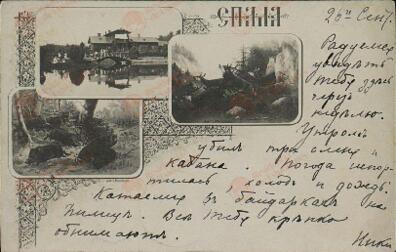 СПАЛА
26го Сент.
Радуемся
увидѣть
тебя здѣсь
черезъ
недѣлю.
Утромъ
убилъ три оленя и
кабана. Погода испор-
тилась, холодъ и дождь.
Катаемся въ байдаркахъ на
Пилицѣ. Всѣ тебя крѣпко
обнимаютъ. Ники